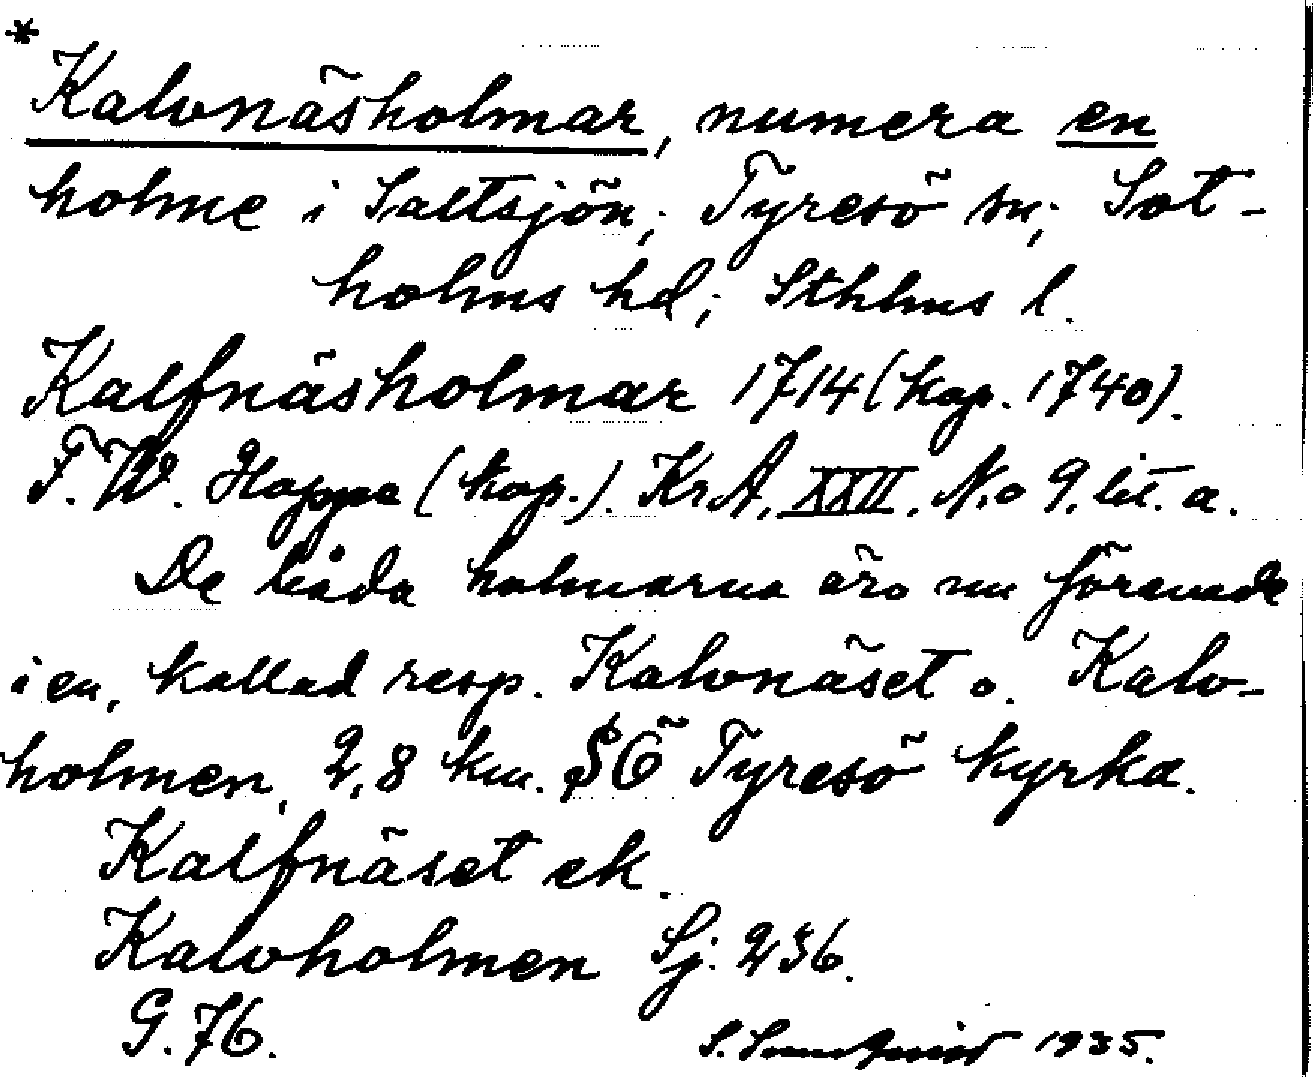 *
Kalvnäsholmar, numera en
holme i Saltsjön; Tyresö sn; Sot-
holms hd; Sthlms l.
Kalfnäsholmar 1714 (kop. 1740).
F. W. Hoppe (kop.). KrA. XXII. No 9. lit. a.
De båda holmarna äro nu förenade
i en, kallad resp. Kalvnäset o. Kalv-
holmen, 2,8 km. SÖ Tyresö kyrka.
Kalfnäset ek.
Kalvholmen Sj. 236.
G. 76.
S. 1935.